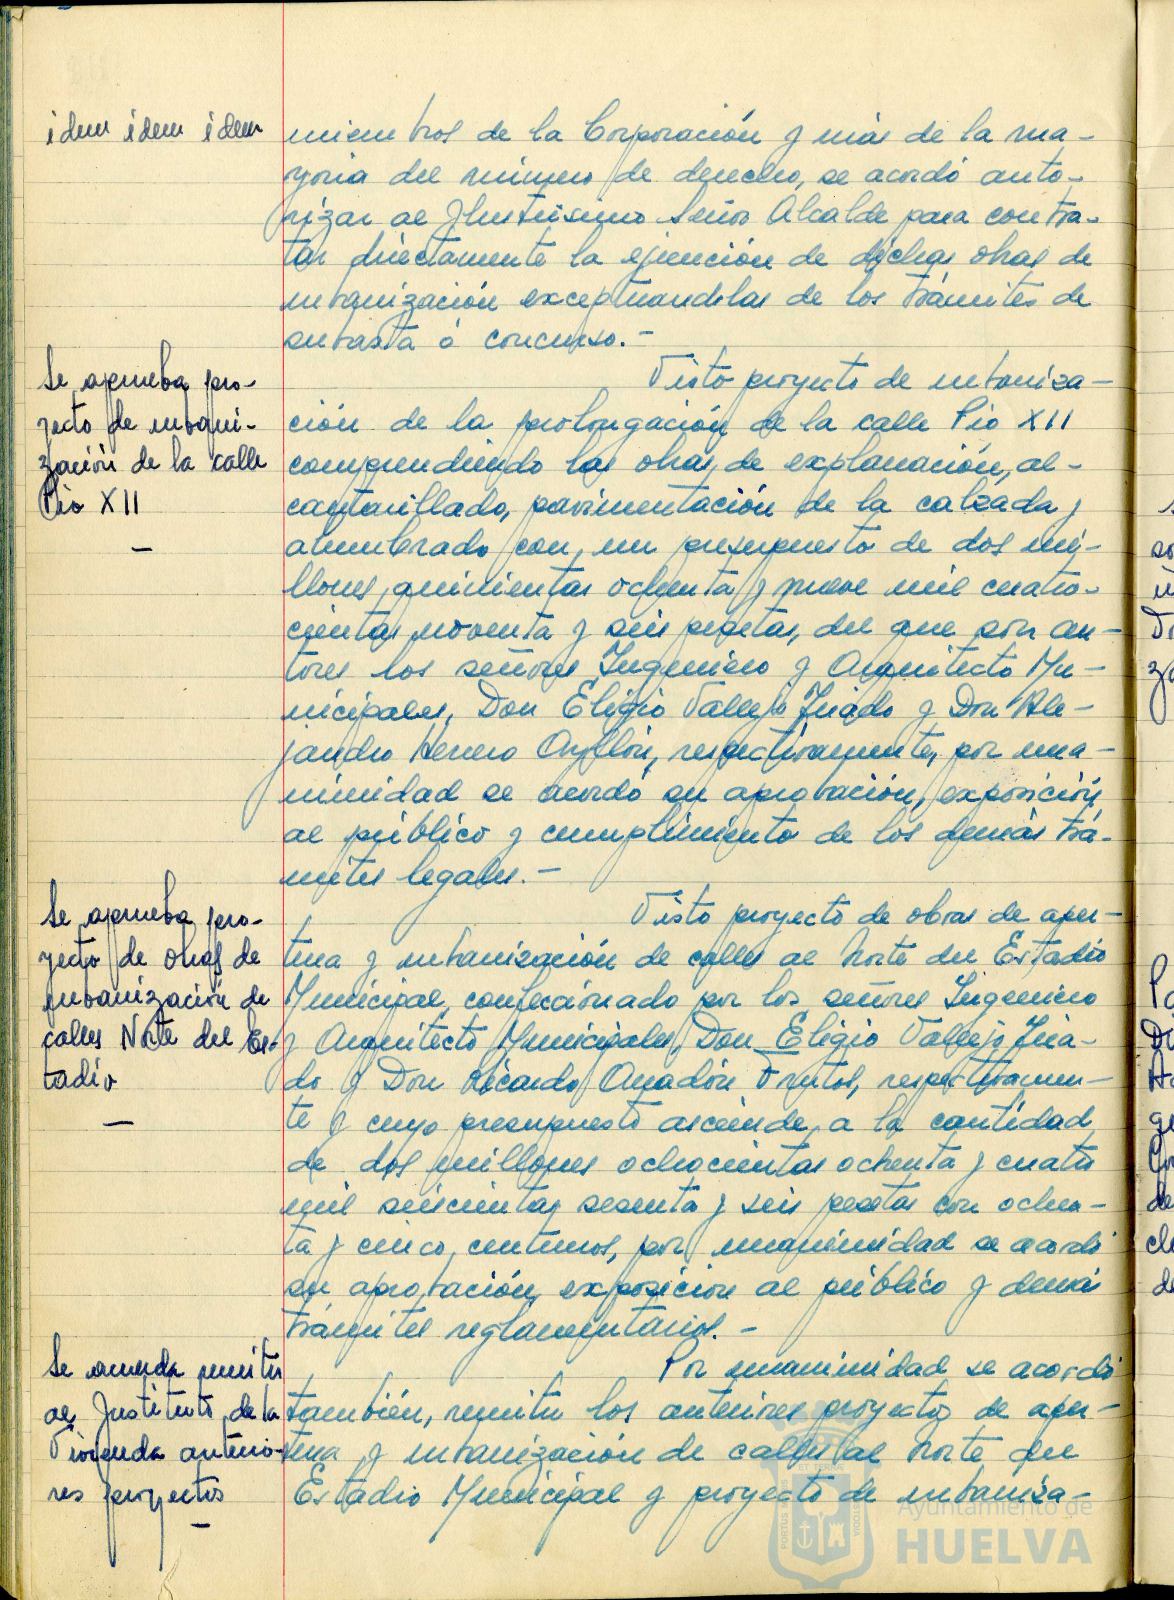 idem idem idem
miembros de la Corporación y más de la ma-
yoria del número de derecho, se acordó auto-
rizar al Ilustrisimo Señor Alcalde para contra-
tar directamente la ejecución de dichas obras de
urbanización exceptuandolas de los trámites de
subasta ó concurso.-
Se aprueba pro-
yecto de urbani-
zación de la calle
Pio XII
-
Visto proyecto de urbaniza-
ción de la prolongación de la calle Pio XII
comprendiendo las obras de explanación, al-
cantarillado, pavimentación de la calzada y
alumbrado con un presupuesto de dos mi-
llones quinientas ochenta y nueve mil cuatro-
cientas noventa y seis pesetas, del que son au-
tores los señores Ingeniero y Arquitecto Mu-
nicipales, Don Eligio Vallejo Jurado y Don Ale-
jandro Herrero Ayllón, respectivamente, por una-
nimidad se acordó su aprobación, exposición
al público y cumplimiento de los demás trá-
mites legales.-
Se aprueba pro-
yecto de obras de
urbanización de
calles Norte del Es-
tadio
-
Visto proyecto de obras de aper-
tura y urbanización de calles al Norte del Estadio
Municipal, confeccionado por los señores Ingeniero
y Arquitecto Municipales, Don Eligio Vallejo Jura-
do y Don Ricardo Anadón Frutos, respectivamen-
te y cuyo presupuesto asciende a la cantidad
de dos millones ochocientas ochenta y cuatro
mil seiscientas sesenta y seis pesetas con ochen-
ta y cinco centimos, por unanimidad se acordó
su aprobación, exposicion al público y demás
trámites reglamentarios.-
Se acuerda remitir
al Instituto de la
Vivienda anterio-
res proyectos
-
Por unanimidad se acordó
también, remitir los anteriores proyectos de aper-
tura y urbanización de calles al Norte del
Estadio Municipal y proyecto de urbaniza-
Ayuntamiento de
HUELVA